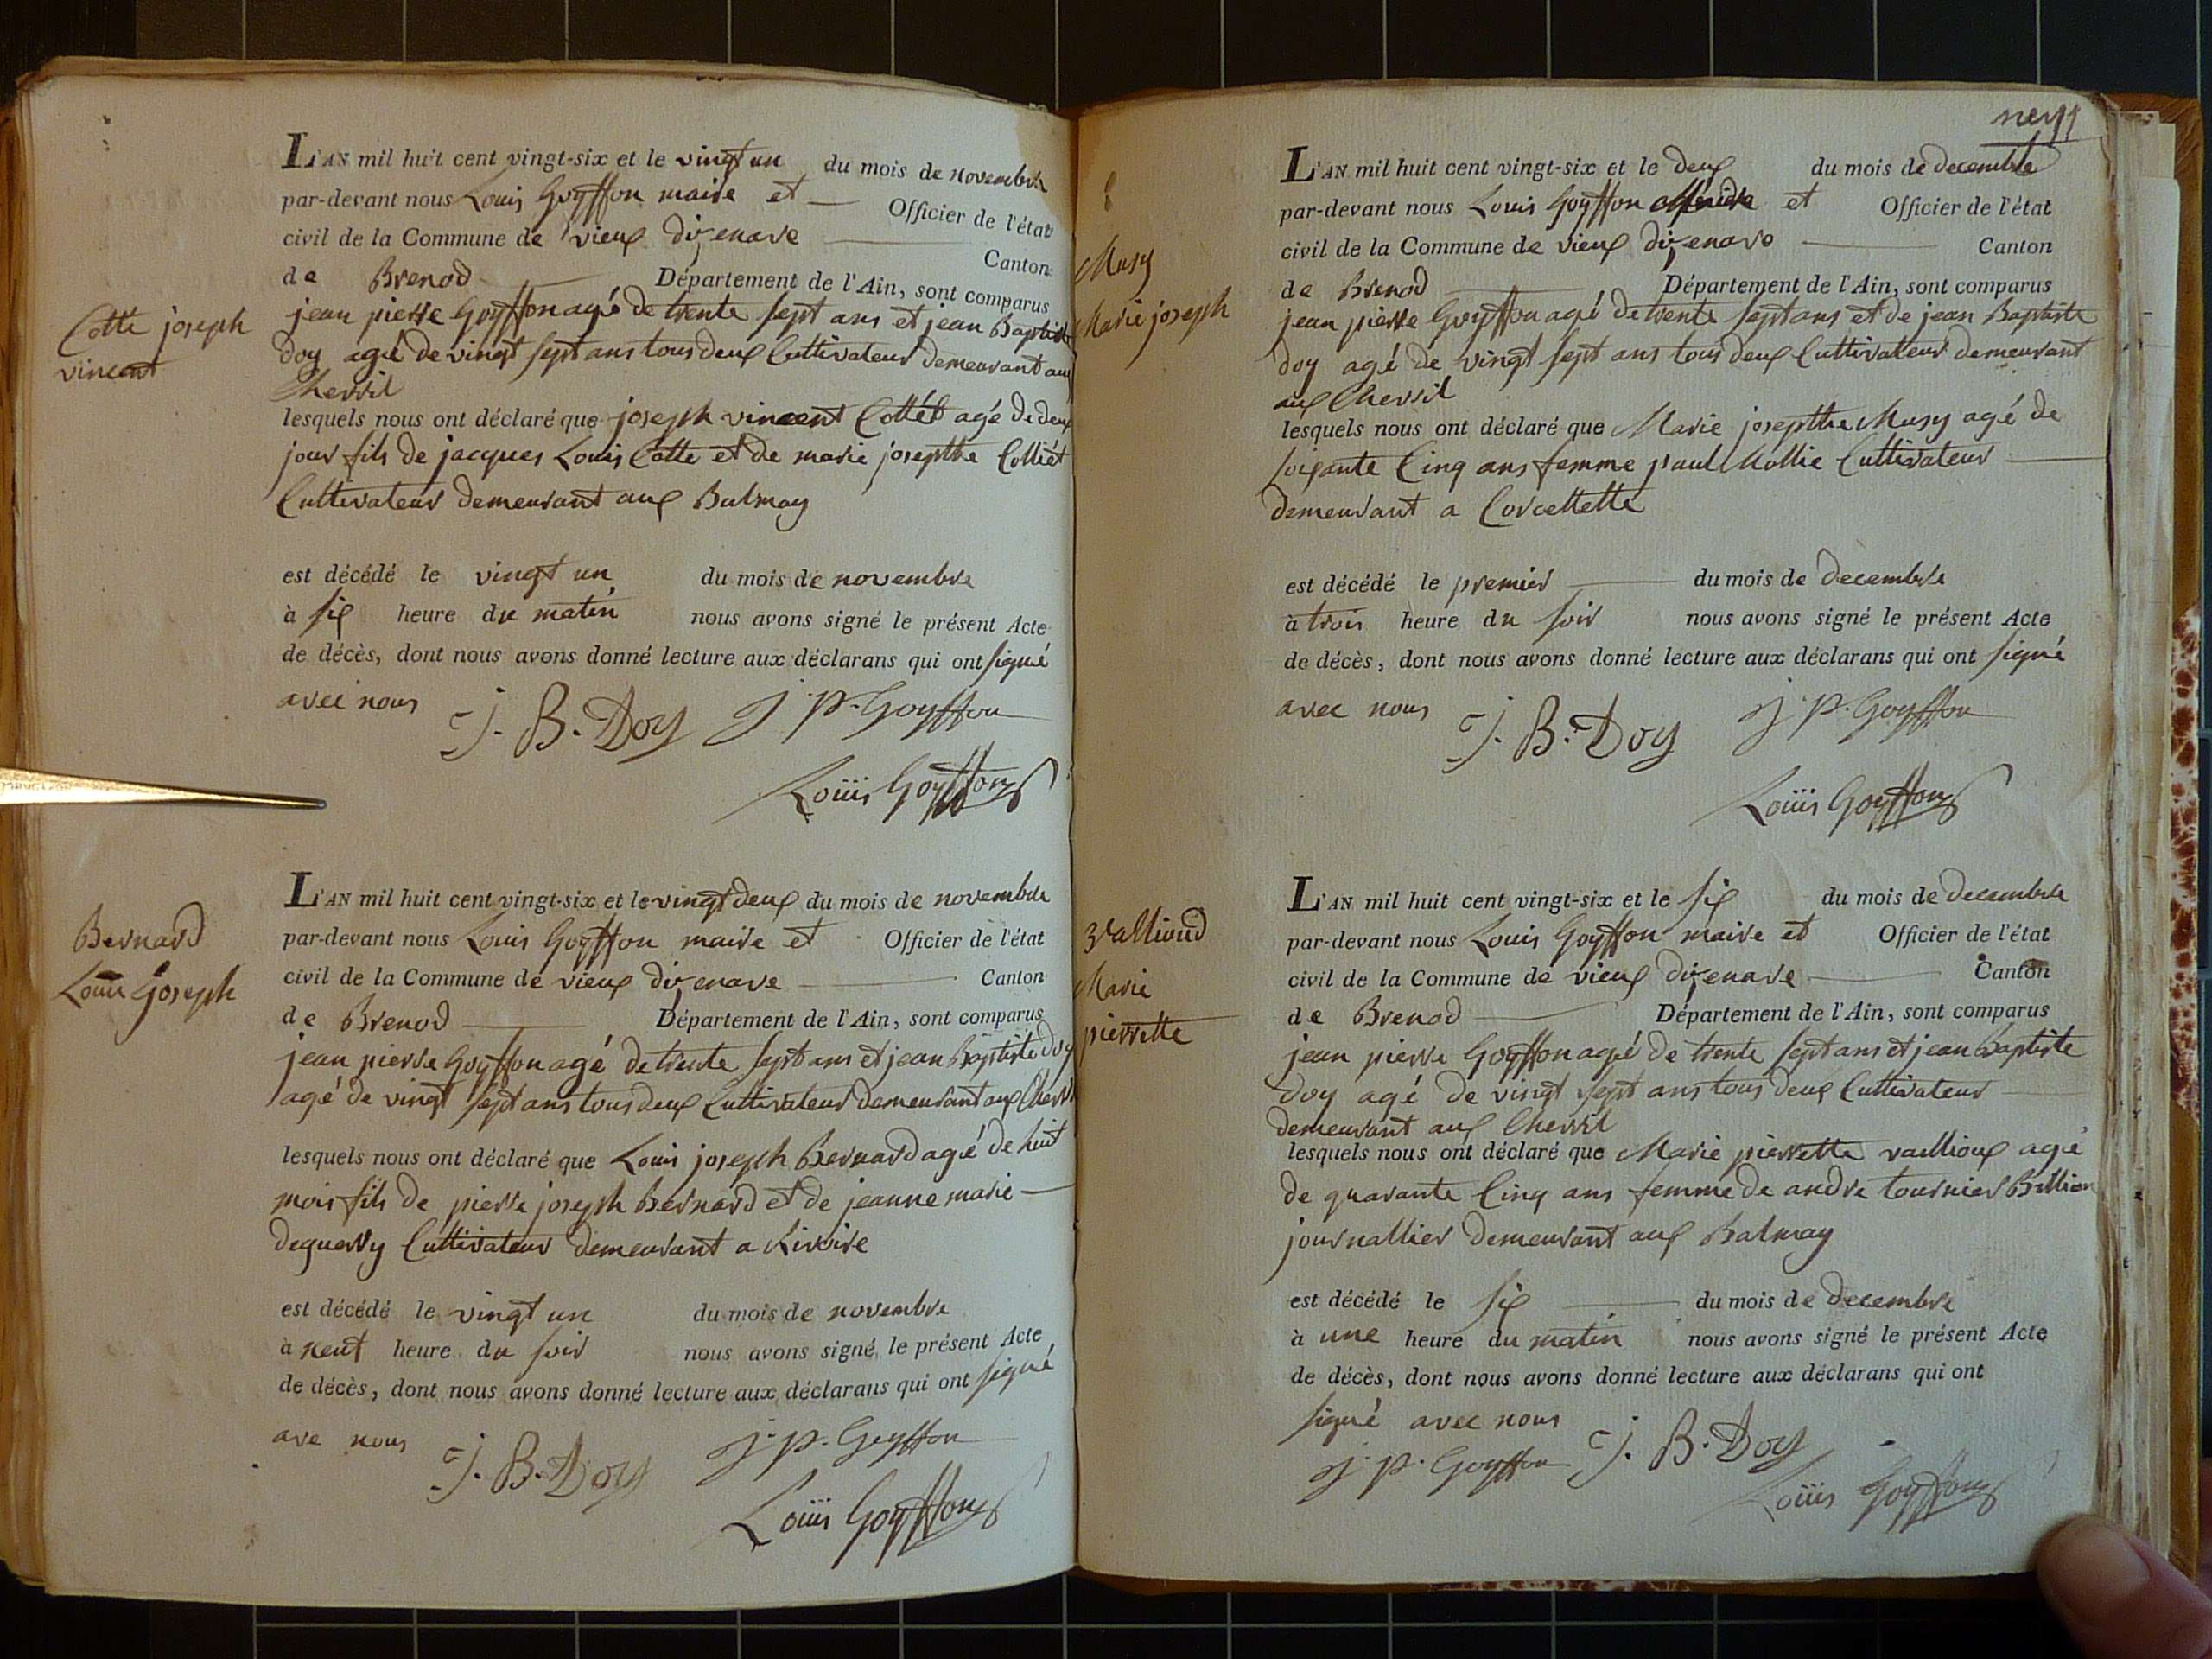 Cotte joseph
vincent
L'AN mil huit cent vingt-six et le vingt un du mois de novembre
par-devant nous Louis Goyffon maire et Officier de l'état
civil de la Commune de vieux dizenave Canton
de Brenod Département de l'Ain, sont comparus
jean pierre Goyffon agé de trente sept ans et jean Baptiste
doy agé de vingt sept ans tous deux Cultivateur demeurant aux
Cherril
lesquels nous ont déclaré que joseph vincent Collét agé de deux
jour fils de jacques Louis Cotte et de marie josepthe Colliét
Cultivateur demeurant aux Balmay
est décédé le vingt un du mois de novembre
à six heure du matin nous avons signé le présent Acte
de décès, dont nous avons donné lecture aux déclarans qui ont signé
avec nous J. B. Doy j. p. Goyffon
Loüis Goyffon
Bernard
Louis Joseph
L'AN mil huit cent vingt-six et le vingt deux du mois de novembre
par-devant nous Louis Goyffon maire et Officier de l'état
civil de la Commune de vieux dizenave Canton
de Brenod Département de l'Ain, sont comparus
jean pierre Goyffon agé de trente sept ans et jean Baptiste doy
agé de vingt sept ans tous deux Cultivateur demeurant aux Cherril
lesquels nous ont déclaré que Louis joseph Bernard agé de huit
mois fils de pierre joseph Bernard et de jeanne marie
dequerry Cultivateur demeurant a
est décédé le vingt un du mois de novembre
à neuf heure du soir nous avons signé le présent Acte
de décès, dont nous avons donné lecture aux déclarans qui ont signé
ave nous J. B. Doy j. p. Goyffon
Loüis Goyffon
Musy
Marie joseph
L'AN mil huit cent vingt-six et le deux du mois de decembre
par-devant nous Louis Goyffon et Officier de l'état
civil de la Commune de vieux dizenave Canton
de Brenod Département de l'Ain, sont comparus
jean pierre Goyffon agé de trente sept ans et de jean Baptiste
doy agé de vingt sept ans tous deux Cultivateur demeurant
aux Cherril
lesquels nous ont déclaré que Marie josepthe Musy agé de
soixante Cinq ans femme paul Mollie Cultivateur
demeurant a Corcellette
est décédé le premier du mois de decembre
à trois heure du soir nous avons signé le présent Acte
de décès, dont nous avons donné lecture aux déclarans qui ont signé
avec nous J. B. Doy j. p. Goyffon
Loüis Goyffon
Marie
pierrette
L'AN mil huit cent vingt-six et le six du mois de decembre
par-devant nous Louis Goyffon maire et Officier de l'état
civil de la Commune de vieux dizenave Canton
de Brenod Département de l'Ain, sont comparus
jean pierre Goyffon agé de trente sept ans et jean Baptiste
doy agé de vingt sept ans tous deux Cultivateur
demeurant aux Cherril
lesquels nous ont déclaré que Marie pierrette vallioux agé
de quarante Cinq ans femme de andre tournier Billion
journallier demeurant aux Balmay
est décédé le six du mois de decembre
à une heure du matin nous avons signé le présent Acte
de décès, dont nous avons donné lecture aux déclarans qui ont
signé avec nous
j. p. Goyffon J. B. Doy
Loüis Goyffon